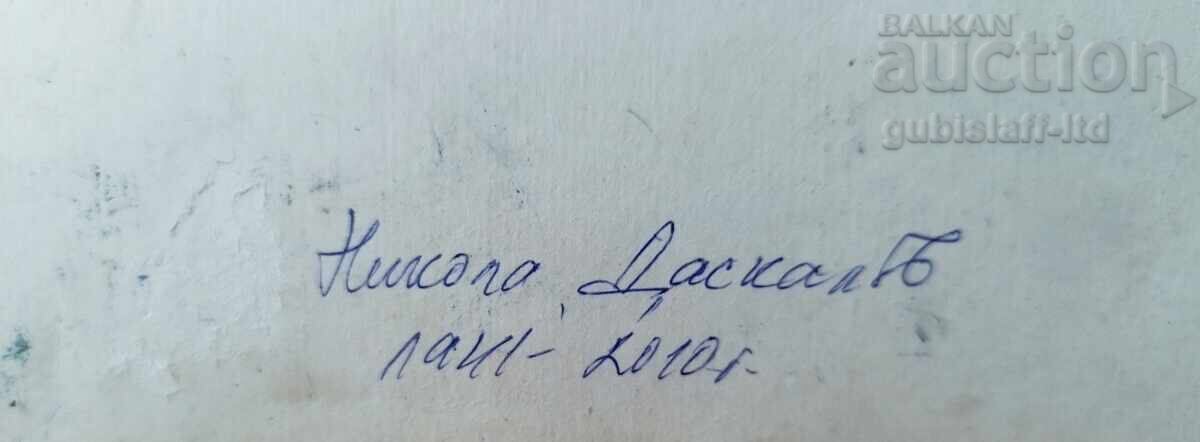 BALKAN
auction
gubislaff-ltd
Никола Даскалъ
2010г.